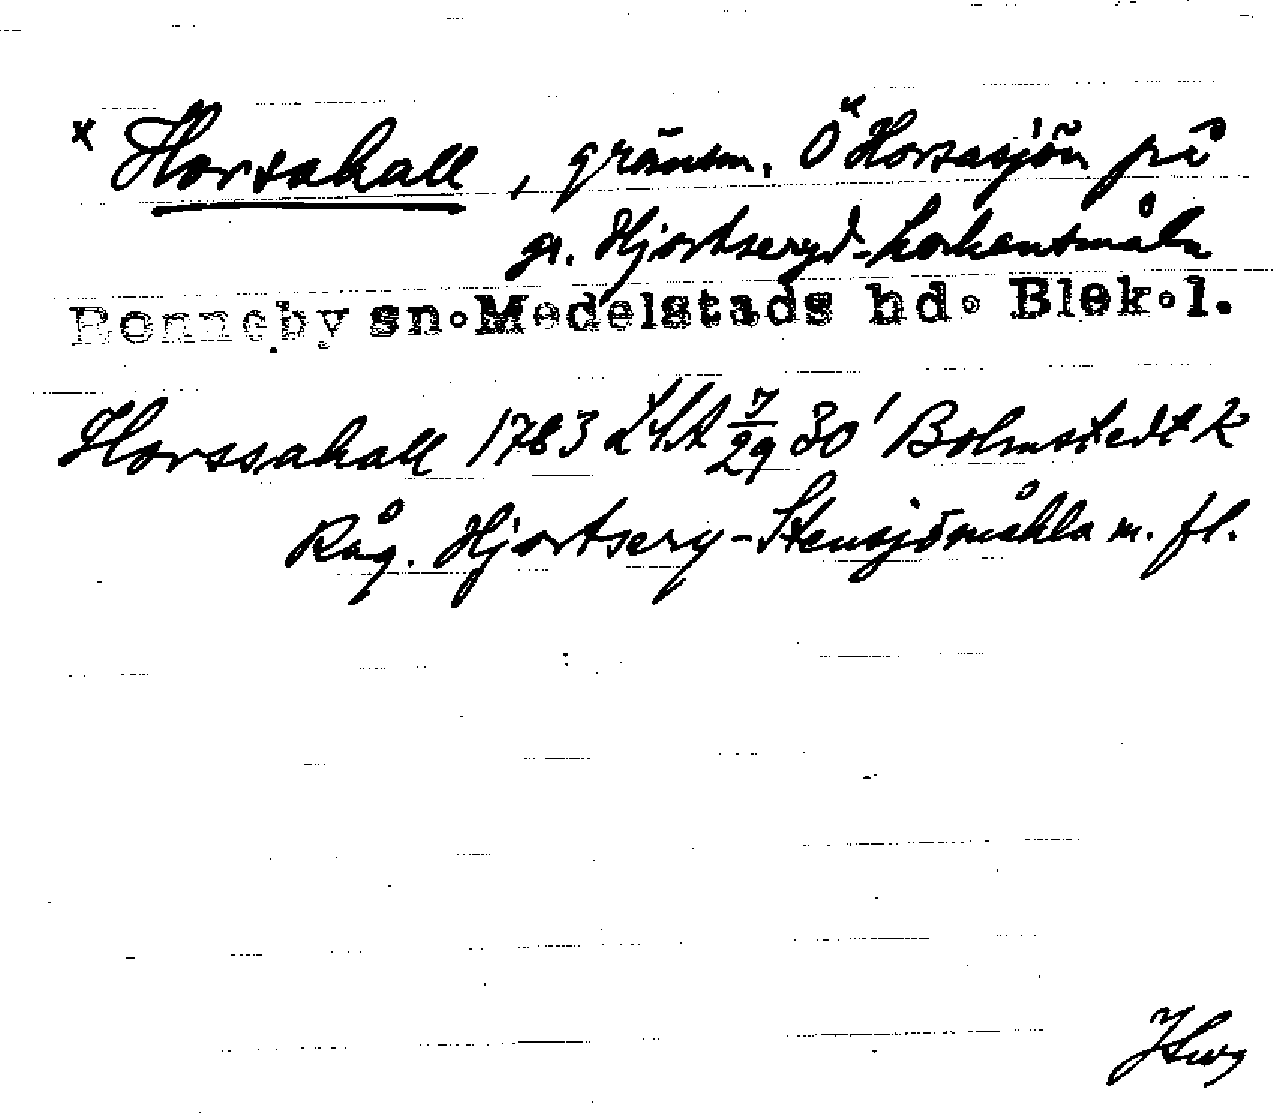 * Horsahall, gränsm. Ö *Horsasjön på
gr. Hjortseryd-Lorkentmåla
Ronneby sn. Medelstads hd. Blek. l.
Horssahall 1783 LSA 7/29 80' Bolmstedt k
Råg. Hjortsery-Stensjömåhla m. fl.